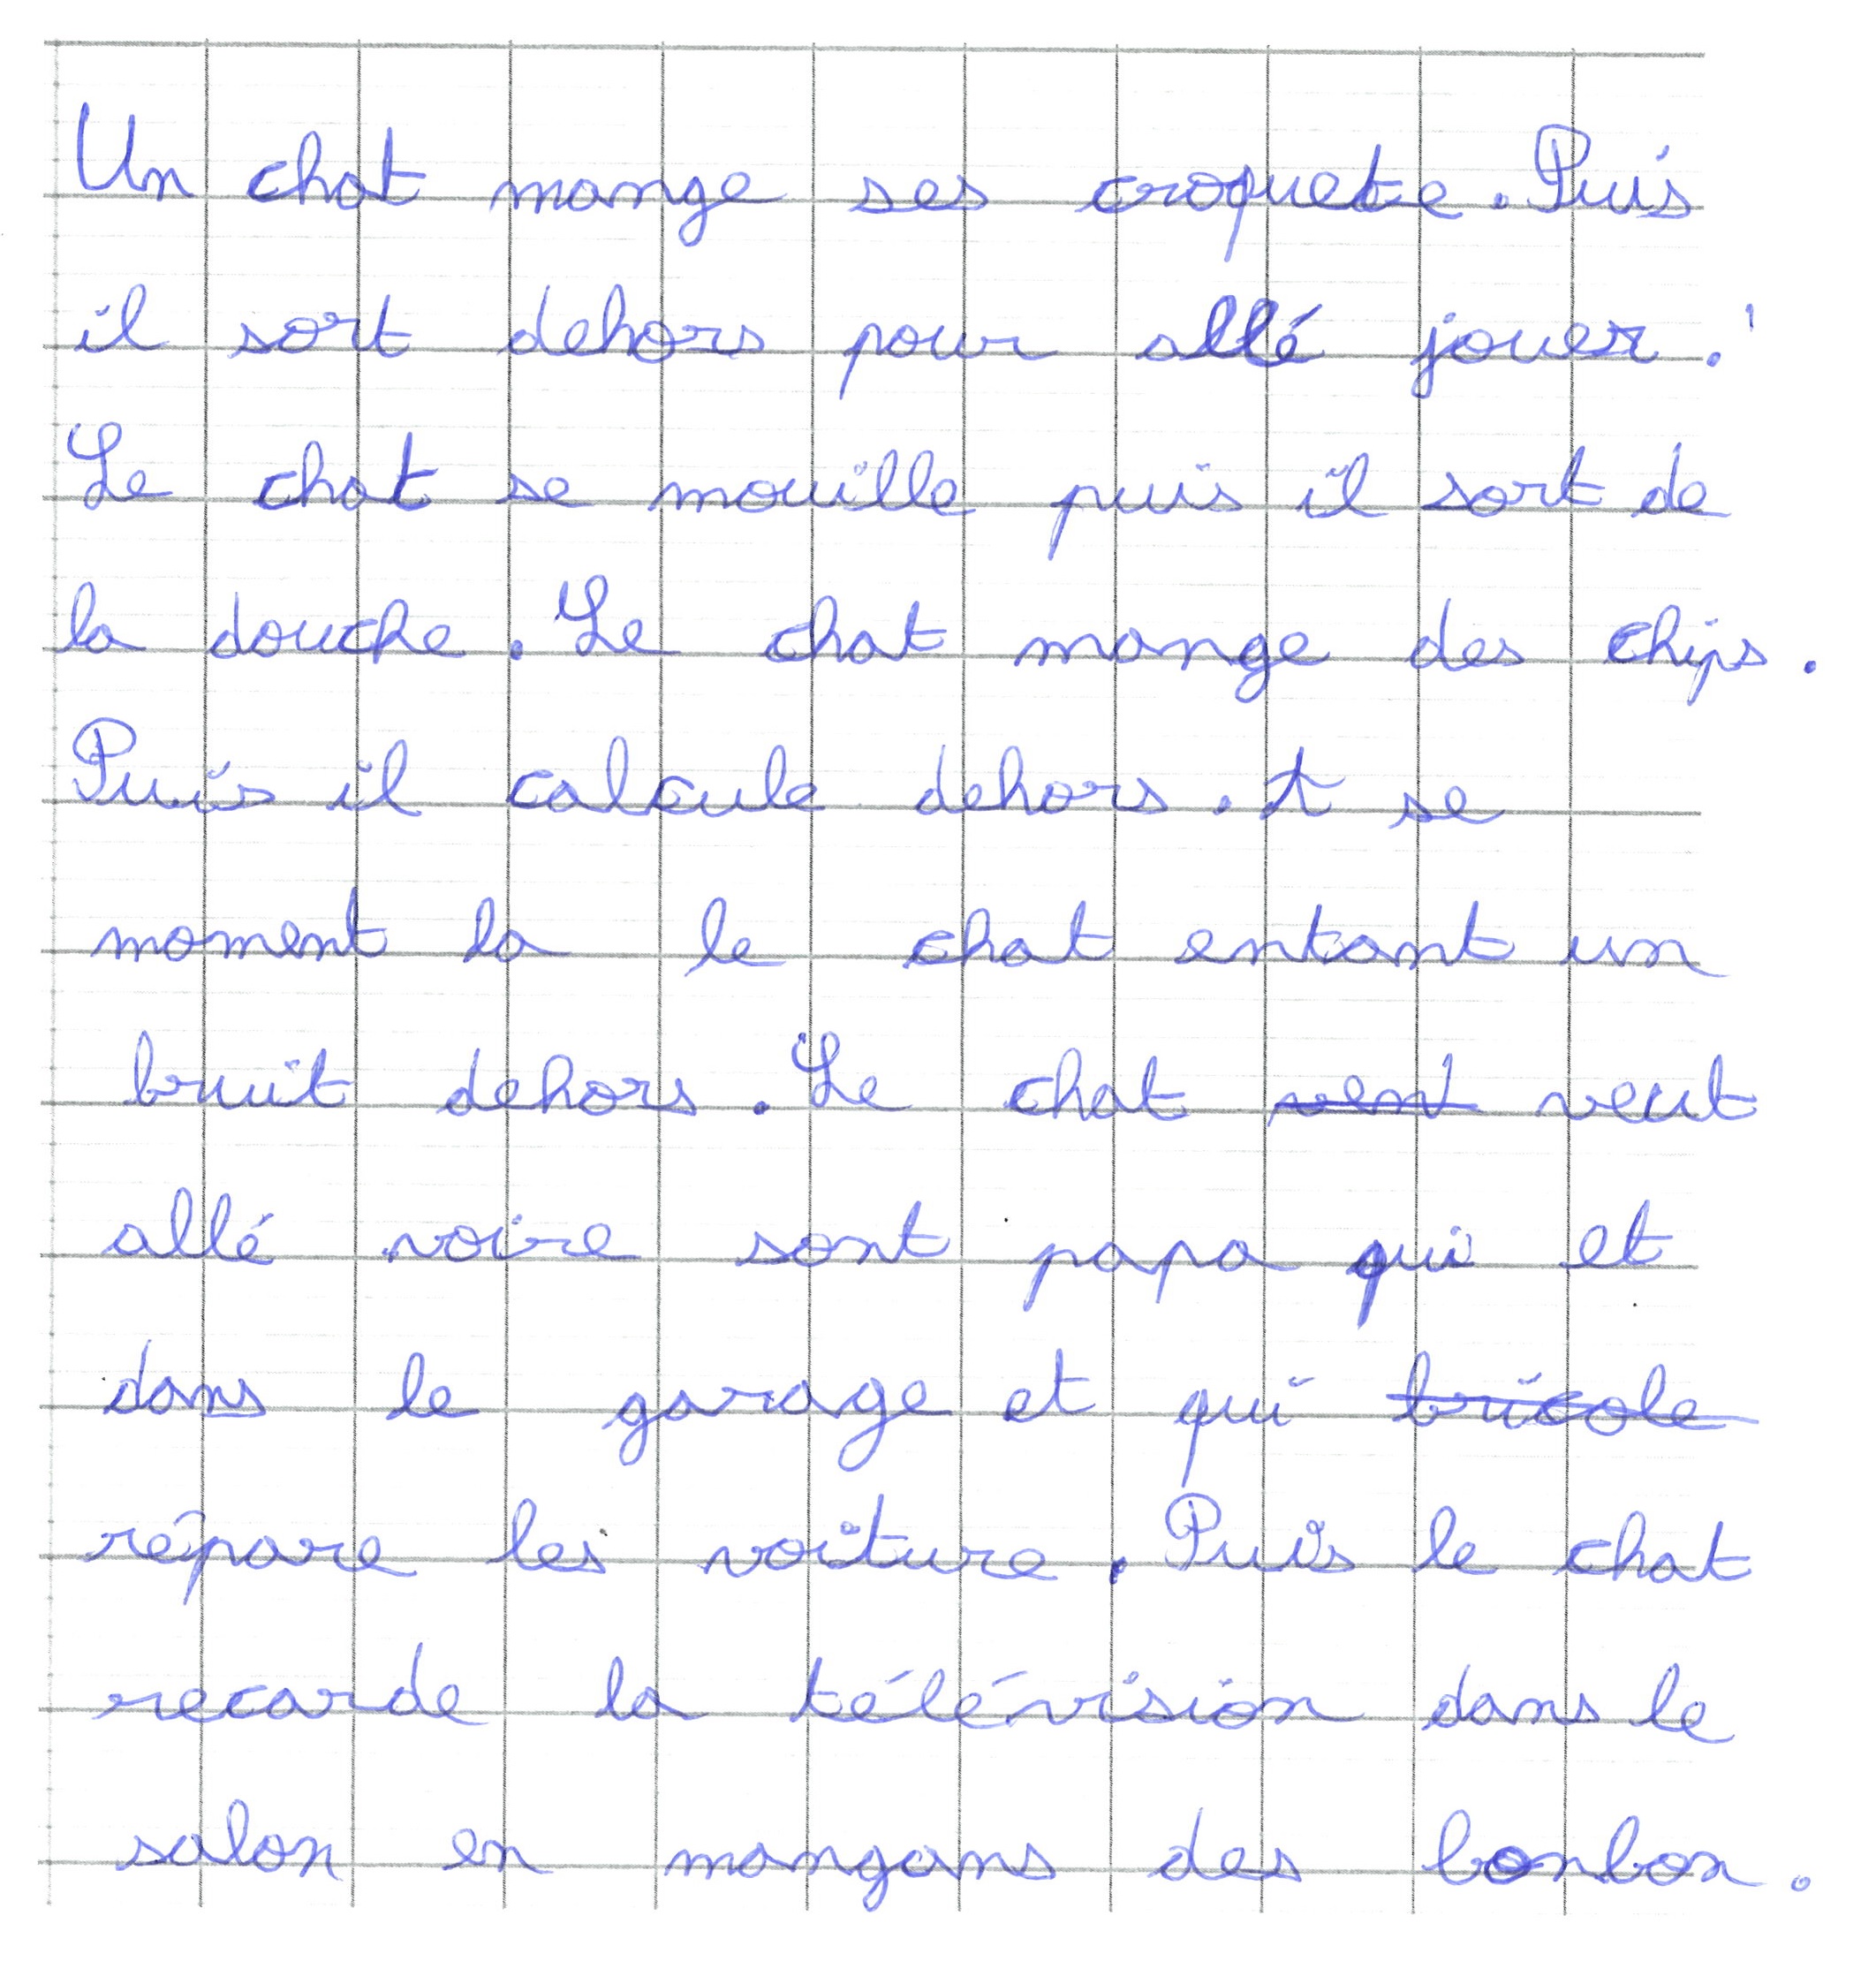 Un chat mange ses croquete. Puis
il sort dehors pour allé jouer.
Le chat se mouille puis il sort de
la douche. Le chat mange des chips.
Puis il calcule dehors. A se
moment la le chat entant un
bruit dehors. Le chat vent veut
allé voire sont papa qui et
dans le garage et qui bricole
répare les voiture. Puis le chat
recarde la télévision dans le
salon en mangans des bonbon.